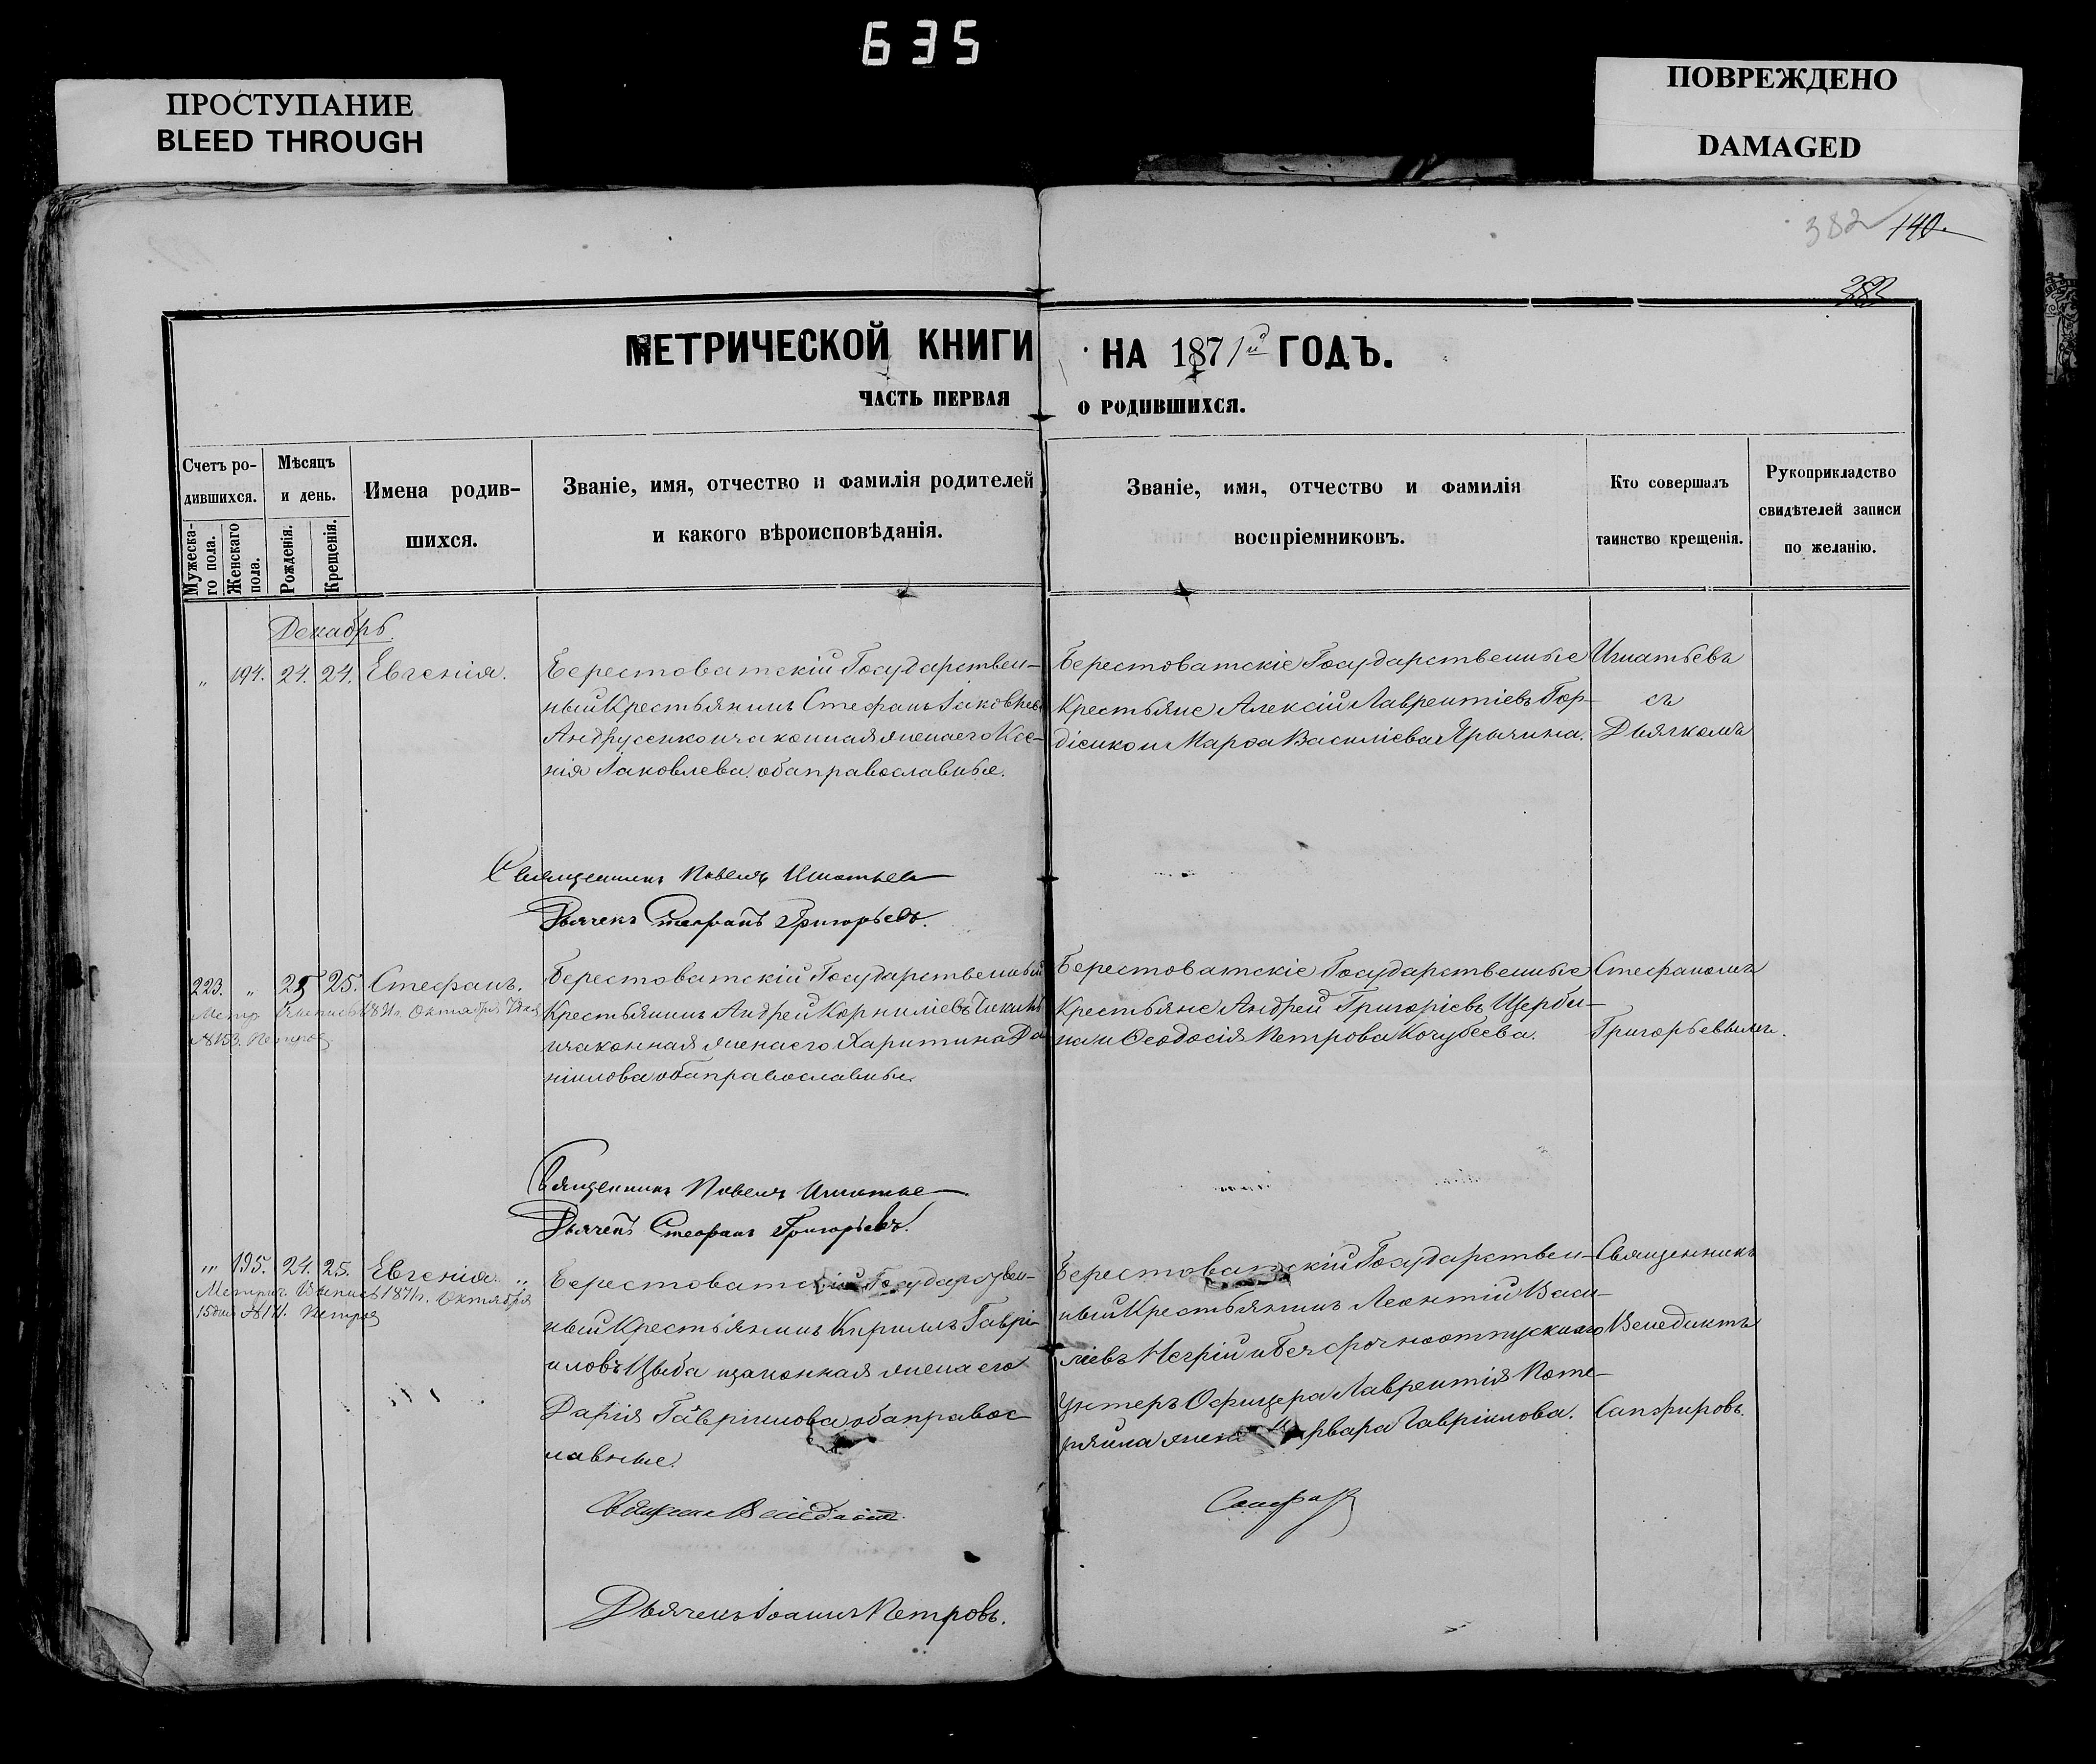 635
ПРОСТУПАНИЕ
BLEED THROUGH
ПОВРЕЖДЕНО
DAMAGED
382 140.
382
МЕТРИЧЕСКОЙ КНИГИ НА 1871й ГОДЪ.
ЧАСТЬ ПЕРВАЯ О РОДИВШИХСЯ.
Счетъ ро-
дившихся.
Мужеска-
го пола.
Женскаго
пола.
Мѣсяцъ
и день.
Рожденія.
Крещенія.
Имена родив-
шихся.
Званіе, имя, отчество и фамилія родителей
и какого вѣроисповѣданія.
Званіе, имя, отчество и фамилія
воспріемниковъ.
Кто совершалъ
таинство крещенія.
Рукоприкладство
свидѣтелей записи
по желанію.
Декабрь.
„ 194. 24. 24. Евгенія.
Берестоватскій Государствен-
ный Крестьянинъ Стефанъ Іаковлевъ
Андрусенко и законная жена его Ксе-
нія Іаковлева оба православные.
Берестоватскіе Государственные
Крестьяне Алексій Лаврентіевъ Гор-
діенко и Марфа Василіева Ярычина.
Игнатьевъ
съ
Дьячкомъ
Священникъ Павелъ Игнатьев
Дьячекъ Стефанъ Григорьевъ.
223. „ 25 25. Стефанъ.
Метр. Выпись 1871г. Октября
№153. Петров
Берестоватскій Государственный
Крестьянинъ Андрей Корниліевъ Чикилъ
и законная жена его Харитина Да
ніилова оба православные.
Берестоватскіе Государственные
Крестьяне Андрей Григоріевъ Щерби-
на и Феодосія Петрова Кочубеева.
Стефаномъ
Григорьевымъ.
Священникъ Павелъ Игнатье
Дьячекъ Стефанъ Григорьевъ.
„ 195. 24. 25. Евгенія.
Метрич. Выпись 1871г. Октября
15 дня Петров
Берестоватскій Государствен-
ный Крестьянинъ Кириллъ Гаврі-
иловъ Цыба и законная жена его
Дарія Гавріилова оба правос
лавные.
Берестоватскій Государствен-
ный Крестьянинъ Леонтій Васи-
ліевъ Негрій и Безсрочноотпускнаго
Унтеръ Офицера Лаврентія Поте-
ряйна жена Варвара Гавріилова.
Священникъ
Венедиктъ
Сапфировъ.
Священникъ Венедиктъ
Сапфир
Дьячекъ Іоаннъ Петровъ.